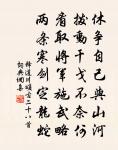 休争自己与山河
拨动干戈不奈何
肴取将军施武略
两条寒剑定龙蛇
释道川颂古二十八首
词典网集